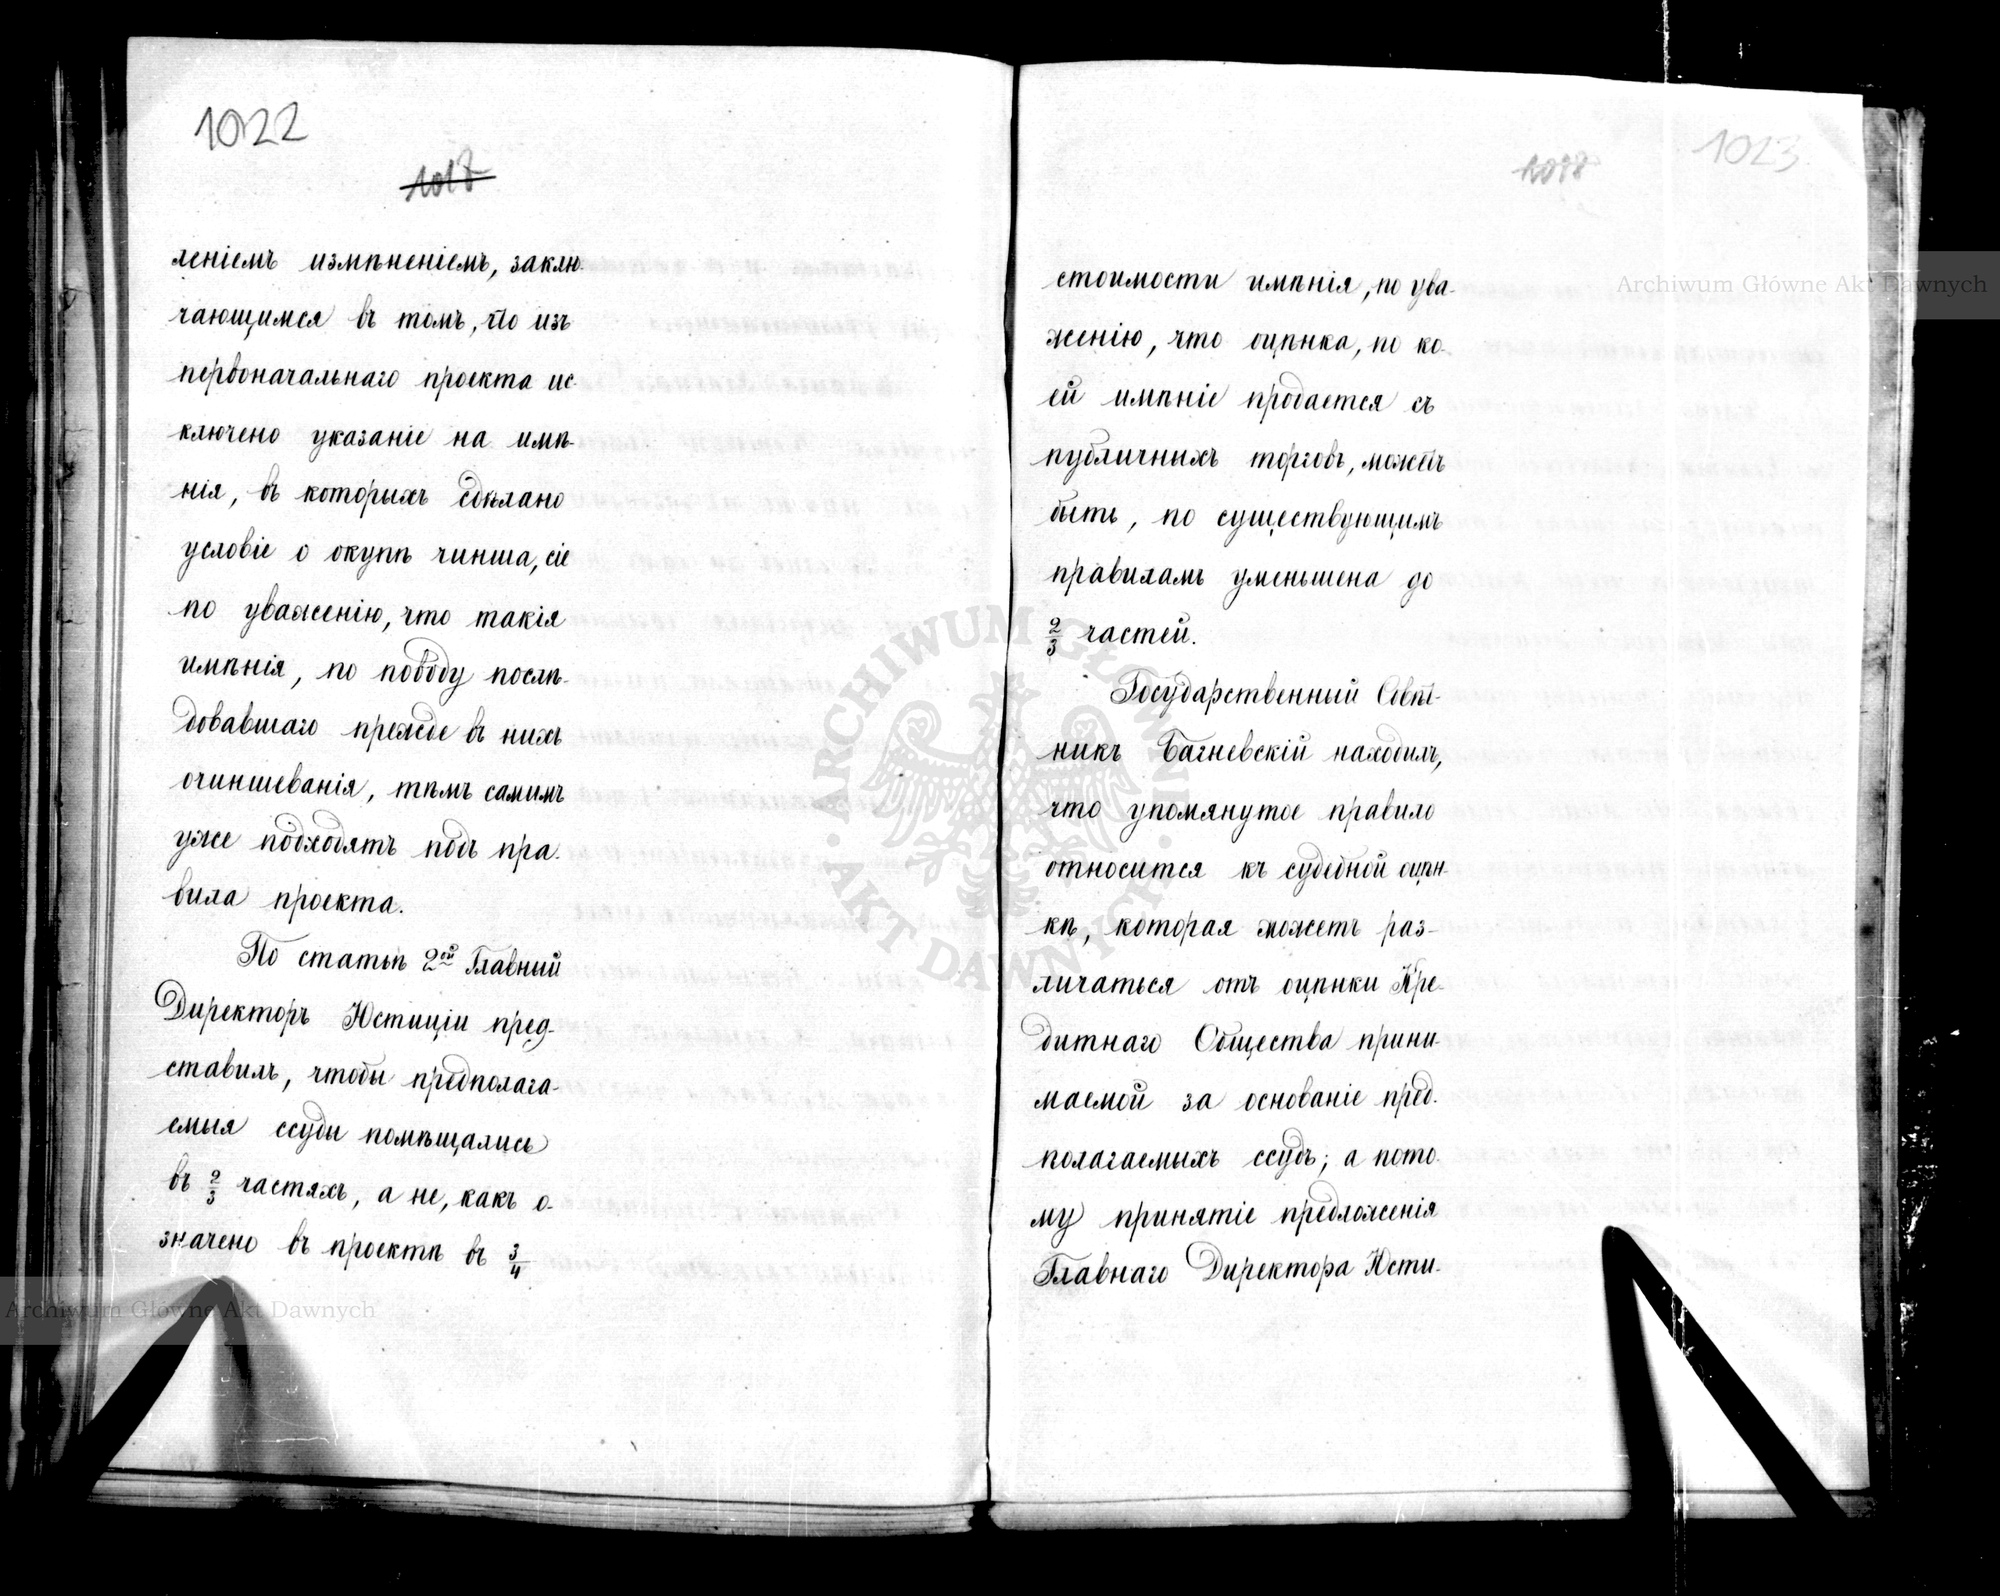 1022
1017
леніемъ измѣненіемъ, заклю-
чающимся въ томъ, что изъ
первоначальнаго проекта ис-
ключено указаніе на имѣ-
нія, въ которыхъ сдѣлано
условіе о окупѣ чинша, сіе
по уваженію, что такія
имѣнія, по поводу послѣ-
довавшаго прежде въ нихъ
очиншеванія, тѣмъ самимъ
уже подходятъ подъ пра-
вила проекта.
По статьѣ 2ой Главний
Директоръ Юстиціи пред-
ставилъ, чтобы предполага-
емыя ссуды помѣщались
въ 2/3 частяхъ, а не, какъ о-
значено въ проектѣ въ 3/4
1023
1018
стоимости имѣнія, по ува-
женію, что оцѣнка, по ко-
ей имѣніе продается съ
публичныхъ торговъ, можетъ
быть, по существующимъ
правиламъ уменьшена до
2/3 частей.
Государственный Совѣт-
никъ Багневскій находилъ,
что упомянутое правило
относится къ судебной оцѣн-
кѣ, которая можетъ раз-
личаться отъ оцѣнки Кре-
дитнаго Общества прини-
маемой за основаніе пред-
полагаемыхъ ссудъ; а пото-
му принятіе предложенія
Главнаго Директора Юсти-
Archiwum Główne Akt Dawnych
Archiwum Główne Akt Dawnych
ARCHIWUM GŁÓWNE · AKT DAWNYCH ·